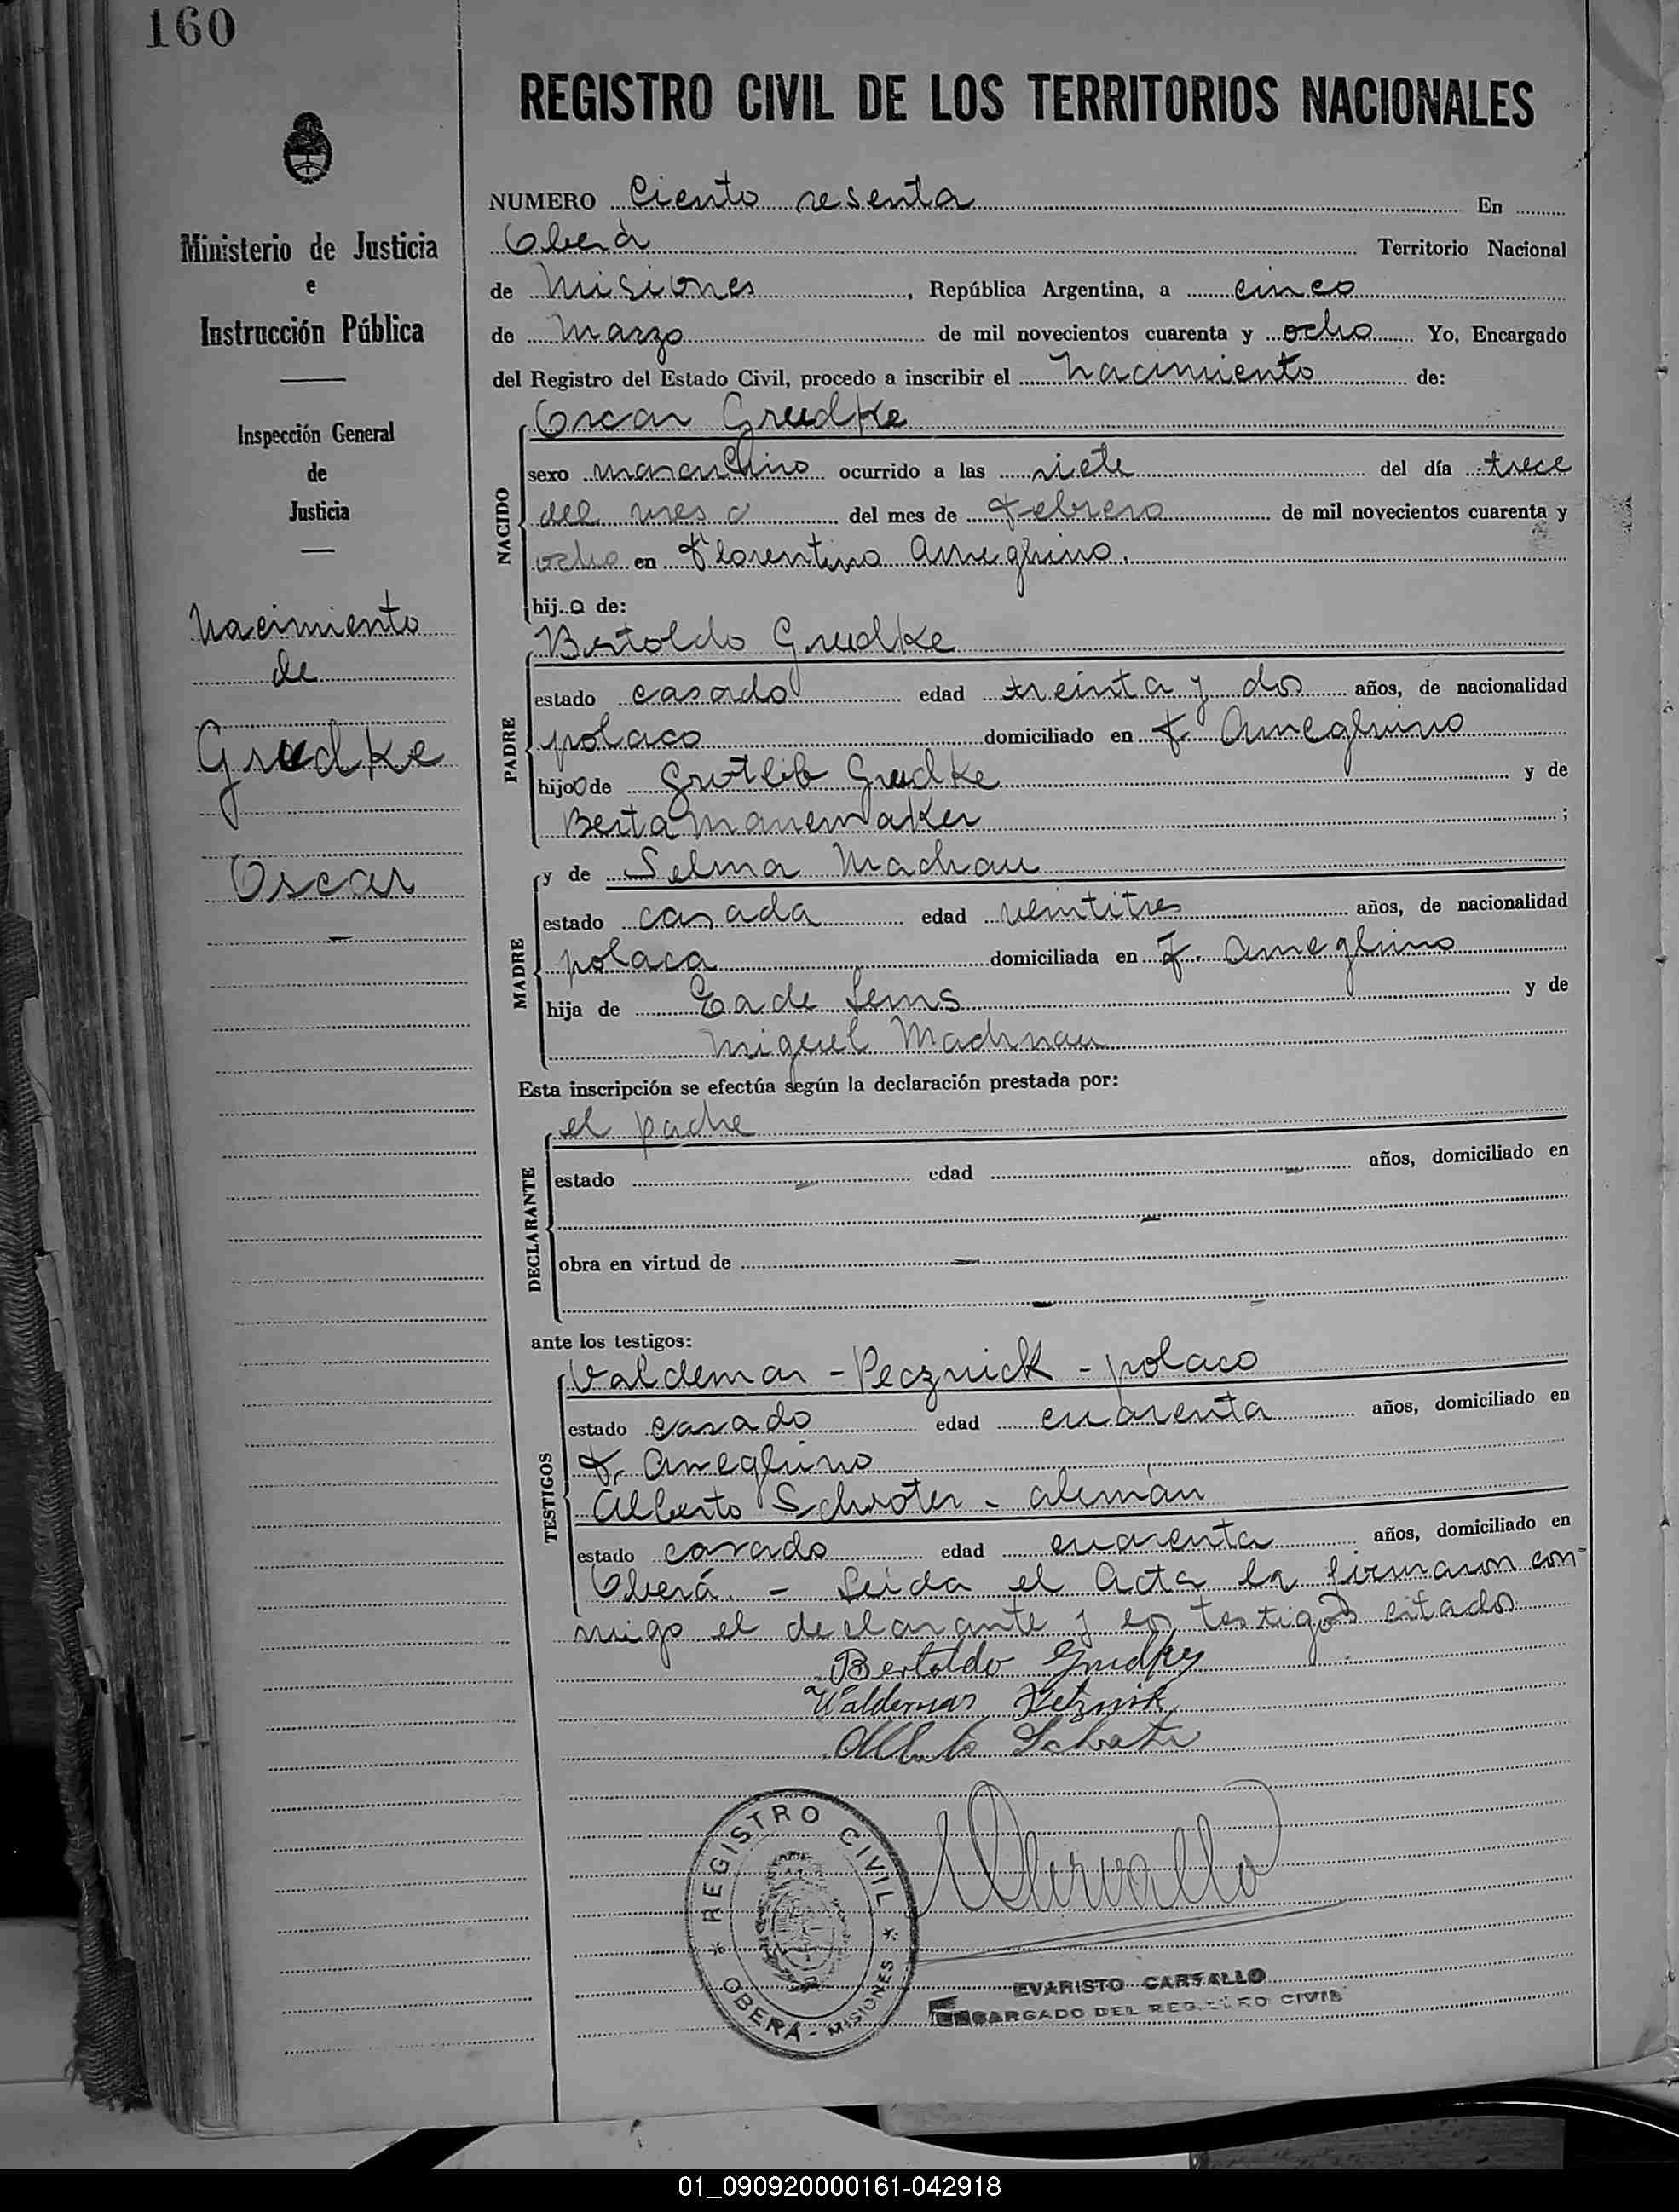 160
REGISTRO CIVIL DE LOS TERRITORIOS NACIONALES
Ministerio de Justicia
e
Instrucción Pública
Inspección General
de
Justicia
Nacimiento
de
Grudke
Oscar
NUMERO Ciento sesenta En
Oberá Territorio Nacional
de Misiones, República Argentina, a cinco
de Marzo de mil novecientos cuarenta y ocho Yo, Encargado
del Registro del Estado Civil, procedo a inscribir el Nacimiento de:
NACIDO
Oscar Grudke
sexo masculino ocurrido a las siete del día trece
del mes del mes de Febrero de mil novecientos cuarenta y
ocho en Florentino Ameghino.
hijo de:
PADRE
Bertoldo Grudke
estado casado edad treinta y dos años, de nacionalidad
polaco domiciliado en F. Ameghino
hijo de Grotlib Grudke y de
Berta Manemaker ;
MADRE
y de Selma Machau
estado casada edad veintitres años, de nacionalidad
polaca domiciliada en F. Ameghino
hija de y de
Miguel Machnau
Esta inscripción se efectúa según la declaración prestada por:
DECLARANTE
el padre
estado edad años, domiciliado en
obra en virtud de
ante los testigos:
TESTIGOS
Valdemar - Pecznick - polaco
estado casado edad cuarenta años, domiciliado en
F. Ameghino
Alberto Schroter - alemán
estado casado edad cuarenta años, domiciliado en
Oberá. - Leida el Acta la firmaron con-
migo el declarante y los testigos citados
Bertoldo Grudke
Waldemar Petznik
REGISTRO CIVIL
OBERÁ - MISIONES
EVARISTO CARSALLO
ENCARGADO DEL REGISTRO CIVIL
01_090920000161-042918